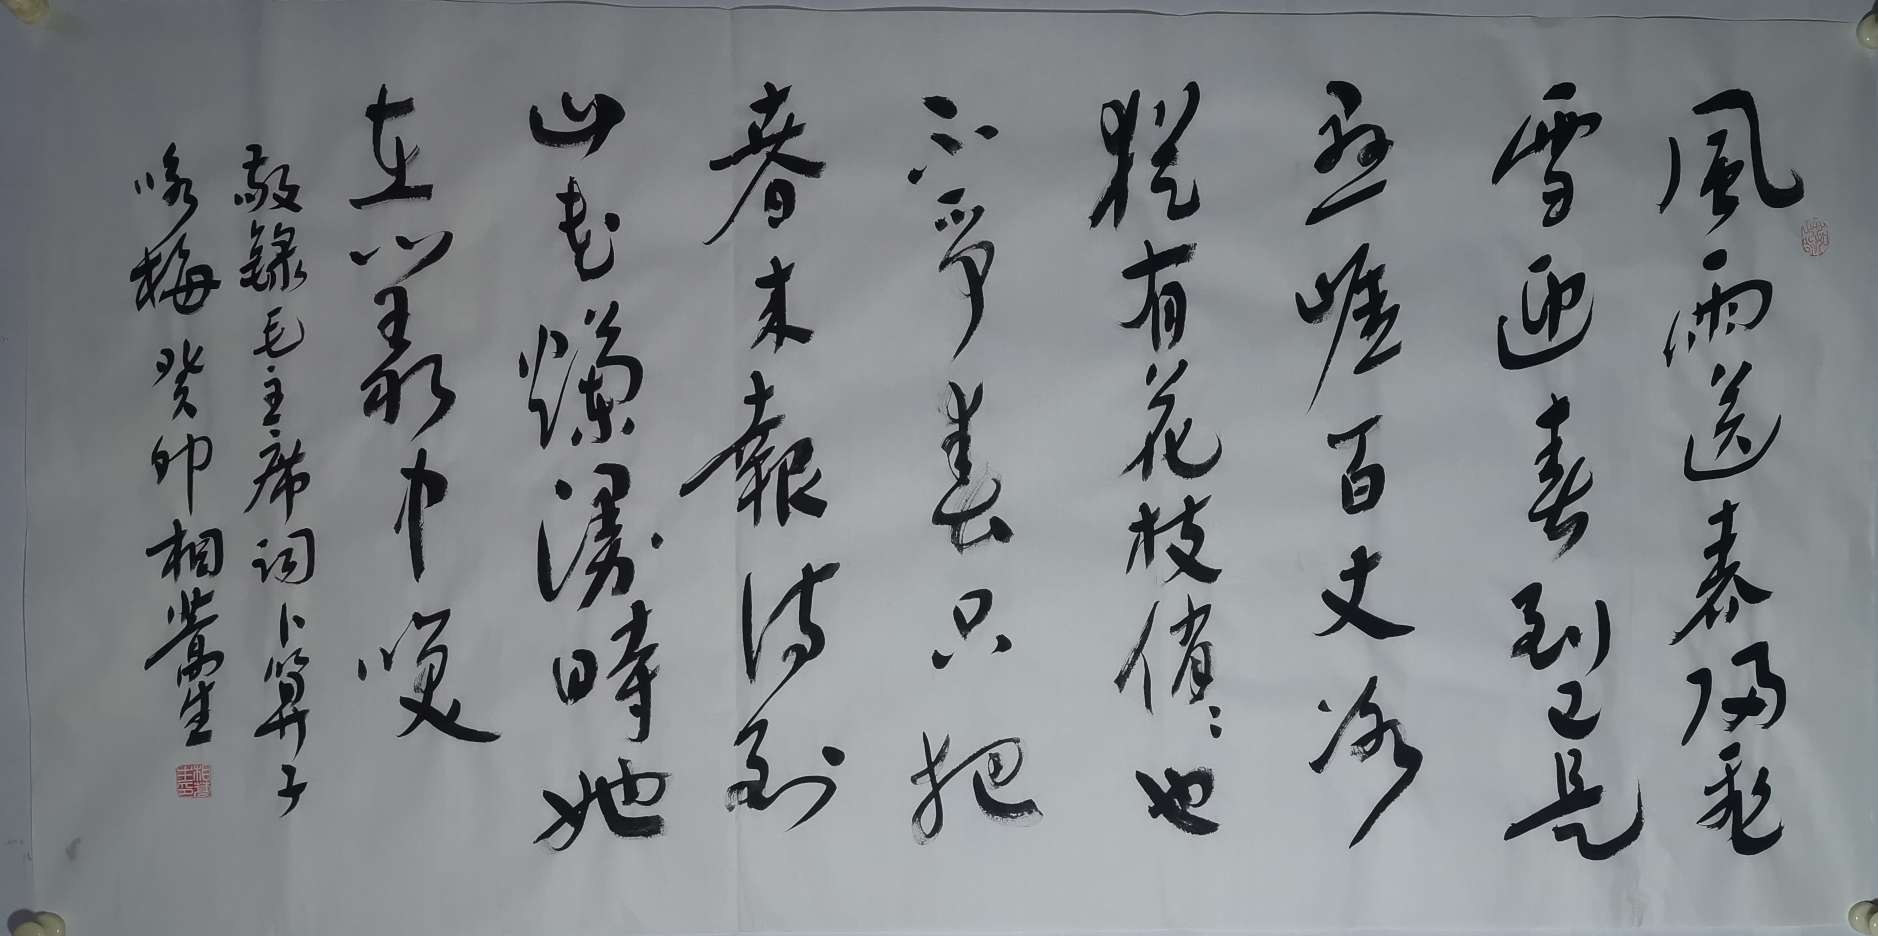 風雨送春歸飛
雪迎春到已是
懸崖百丈冰
猶有花枝俏〻也
不爭春只把
春來報待到
山花爛漫時她
在叢中咲
敬錄毛主席詞卜算子
咏梅 癸卯 相生